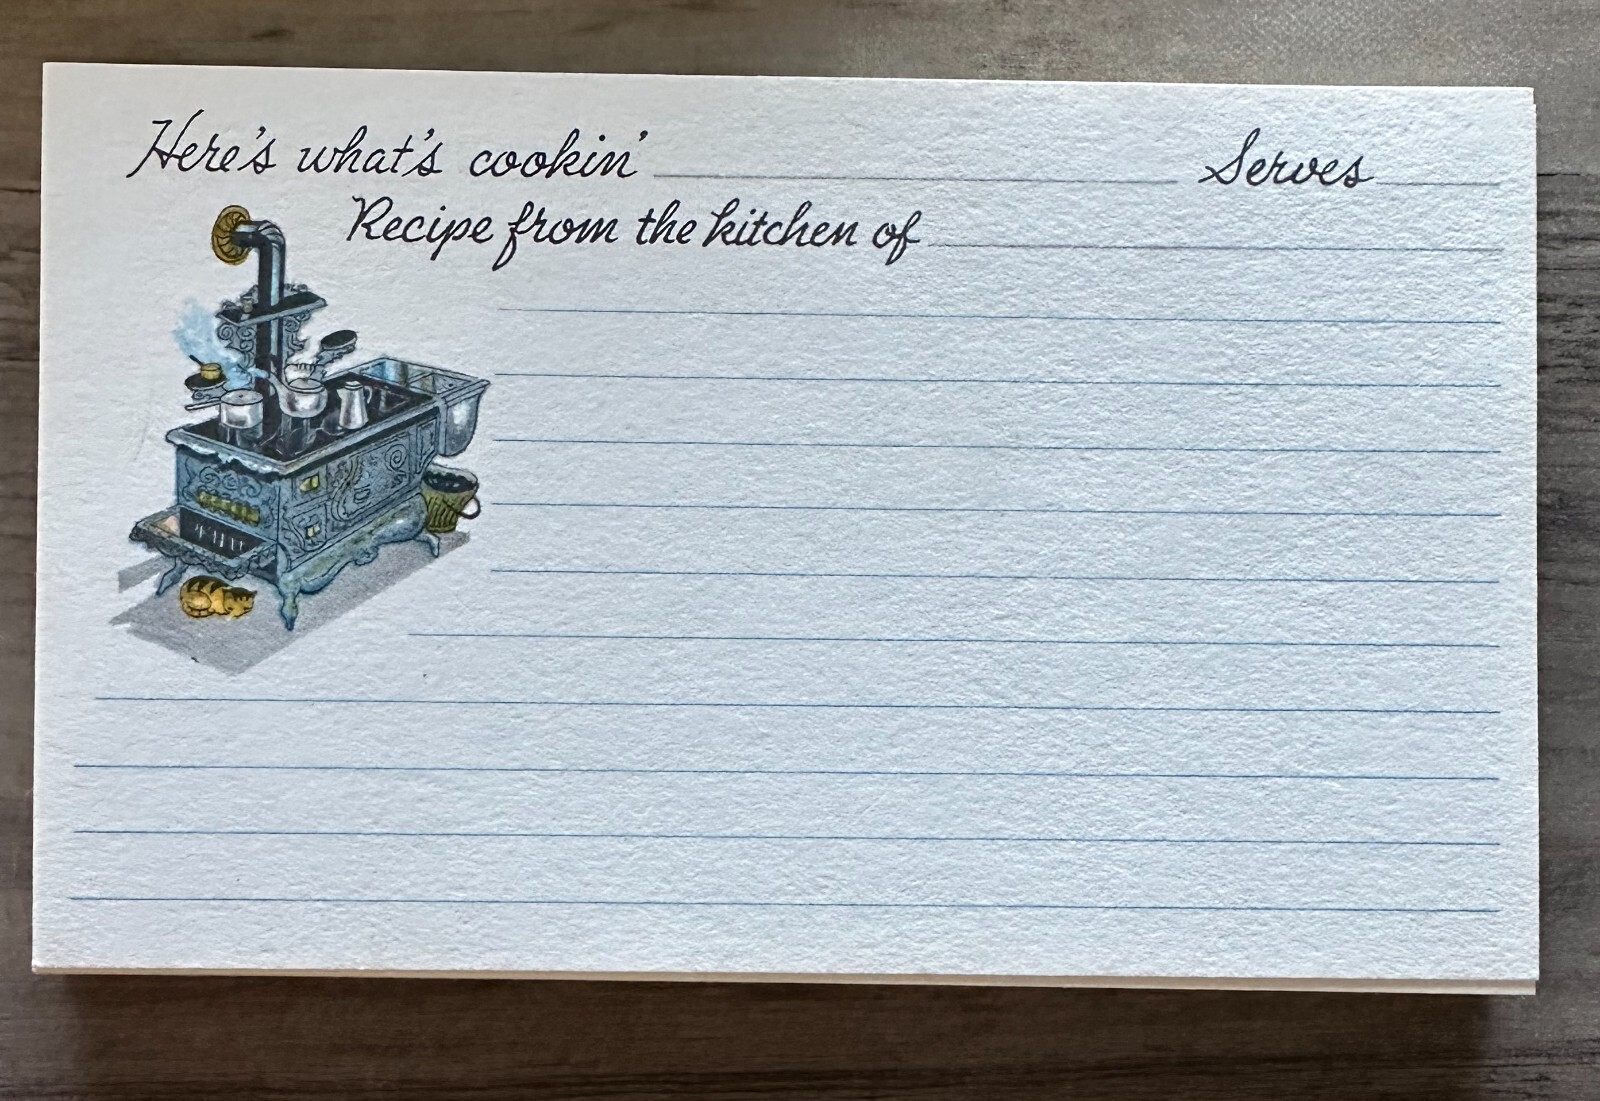 Here's what's cookin' Serves
Recipe from the kitchen of